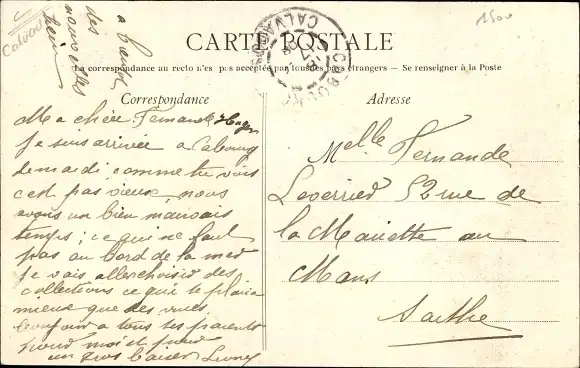 a bientot
des
nouvelles
hein
Calvados
1500
CARTE POSTALE
La correspondance au recto n'est pas acceptée par tous les pays étrangers — Se renseigner à la Poste
CABOURG
CALVADOS
Correspondance
Ma chère Fernande
Je suis arrivée a Cabourg
de mardi comme tu vois
c'est pas vieux, nous
avons un bien mauvais
temps; ce qui ne faut
pas au bord de la mer
Je vais aller choisir des
collections ce qui te plaira
mieux que des vues.
Bonjour a tous tes parents
pour moi et pour
un gros baiser
Adresse
Melle Fernande
Leverrier 52 rue de
la Mariette au
Mans
Sarthe